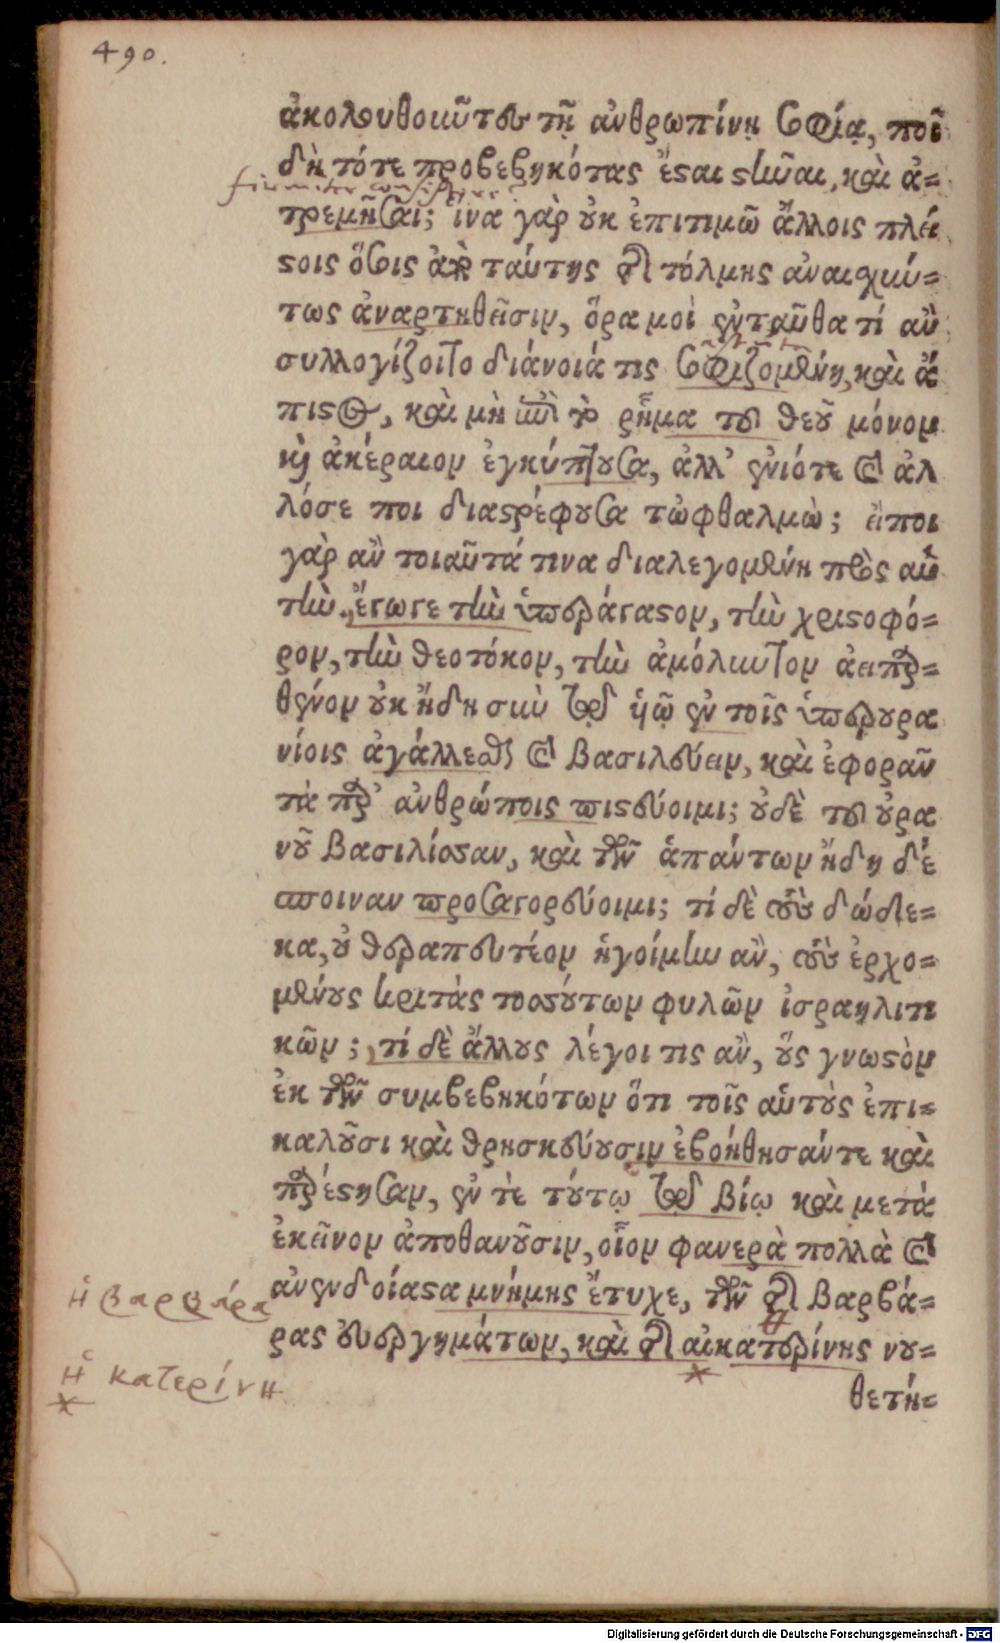 490.
ἀκολουθοιῦτες τῇ ἀνθρωπίνῃ σοφίᾳ, ποῖ
δὴ τότε προβεβηκότας ἔσαι στῶαι, καὶ ἀ=
firmiter consistere
τρεμῆσαι; ἵνα γὰρ οὐκ ἐπιτιμῶ ἄλλοις πλεί
στοις ὅσοις ἀπὸ ταύτης τῆς τόλμης ἀναισχύν=
τως ἀναρτηθεῖσιν, ὅρα μοὶ ἐνταῦθα τί ἂν
συλλογίζοιτο διάνοιά τις σοφιζομένη, καὶ ἄ
πιστος, καὶ μὴ ἐπὶ τὸ ῥῆμα τοῦ θεοῦ μόνον
καὶ ἀκέραιον ἐγκύπτουσα, ἀλλ' ἐνιότε καὶ ἀλ
λόσε ποι διαστρέφουσα τὠφθαλμὼ; εἴποι
γὰρ ἂν τοιαῦτά τινα διαλεγομένη πρὸς αὑ
τὴν. ἔγωγε τὴν ὑπεράγαστον, τὴν χριστοφό=
ρον, τὴν θεοτόκον, τὴν ἀμόλυντον ἀειπαρ=
θένον οὐκ ἤδη σὺν τῷ υἱῷ ἐν τοῖς ὑπερουρα
νίοις ἀγάλλεσθαι καὶ βασιλεύειν, καὶ ἐφορᾶν
τὰ παρ' ἀνθρώποις πιστεύοιμι; οὐδὲ τοῦ οὐρα
νοῦ βασιλίσσαν, καὶ τῶν ἁπάντων ἤδη δέ
σποιναν προσαγορεύοιμι; τί δὲ τοὺς δώδε=
κα, οὐ θεραπευτέον ἡγοίμην ἂν, τοὺς ἐρχο=
μένους κριτὰς τοσούτων φυλῶν ἰσραηλιτι
κῶν; τί δὲ ἄλλους λέγοι τις ἂν, οὓς γνωστὸν
ἐκ τῶν συμβεβηκότων ὅτι τοῖς αὐτοὺς ἐπι=
καλοῦσι καὶ θρησκεύουσιν ἐβοήθησάντε καὶ
παρέστησαν, ἔν τε τούτῳ τῷ βίῳ καὶ μετὰ
ἐκεῖνον ἀποθανοῦσιν, οἷον φανερὰ πολλὰ καὶ
ἀνενδοίαστα μνήμης ἔτυχε, τῶν τῆς βαρβά=
ἡ βαρβάρα
ρας εὐεργημάτων, καὶ τῆς αἰκατερίνης νου=
ἡ κατερίνη
θετή=
Digitalisierung gefördert durch die Deutsche Forschungsgemeinschaft - DFG